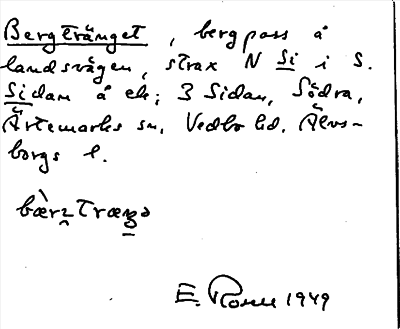 Bergtränget, bergpass å
landsvägen, strax N Si i S.
Sidan å ek; 3 Sidan, Södra,
Ärtemarks sn, Vedbo hd, Älvs-
borgs l.
E. 1949